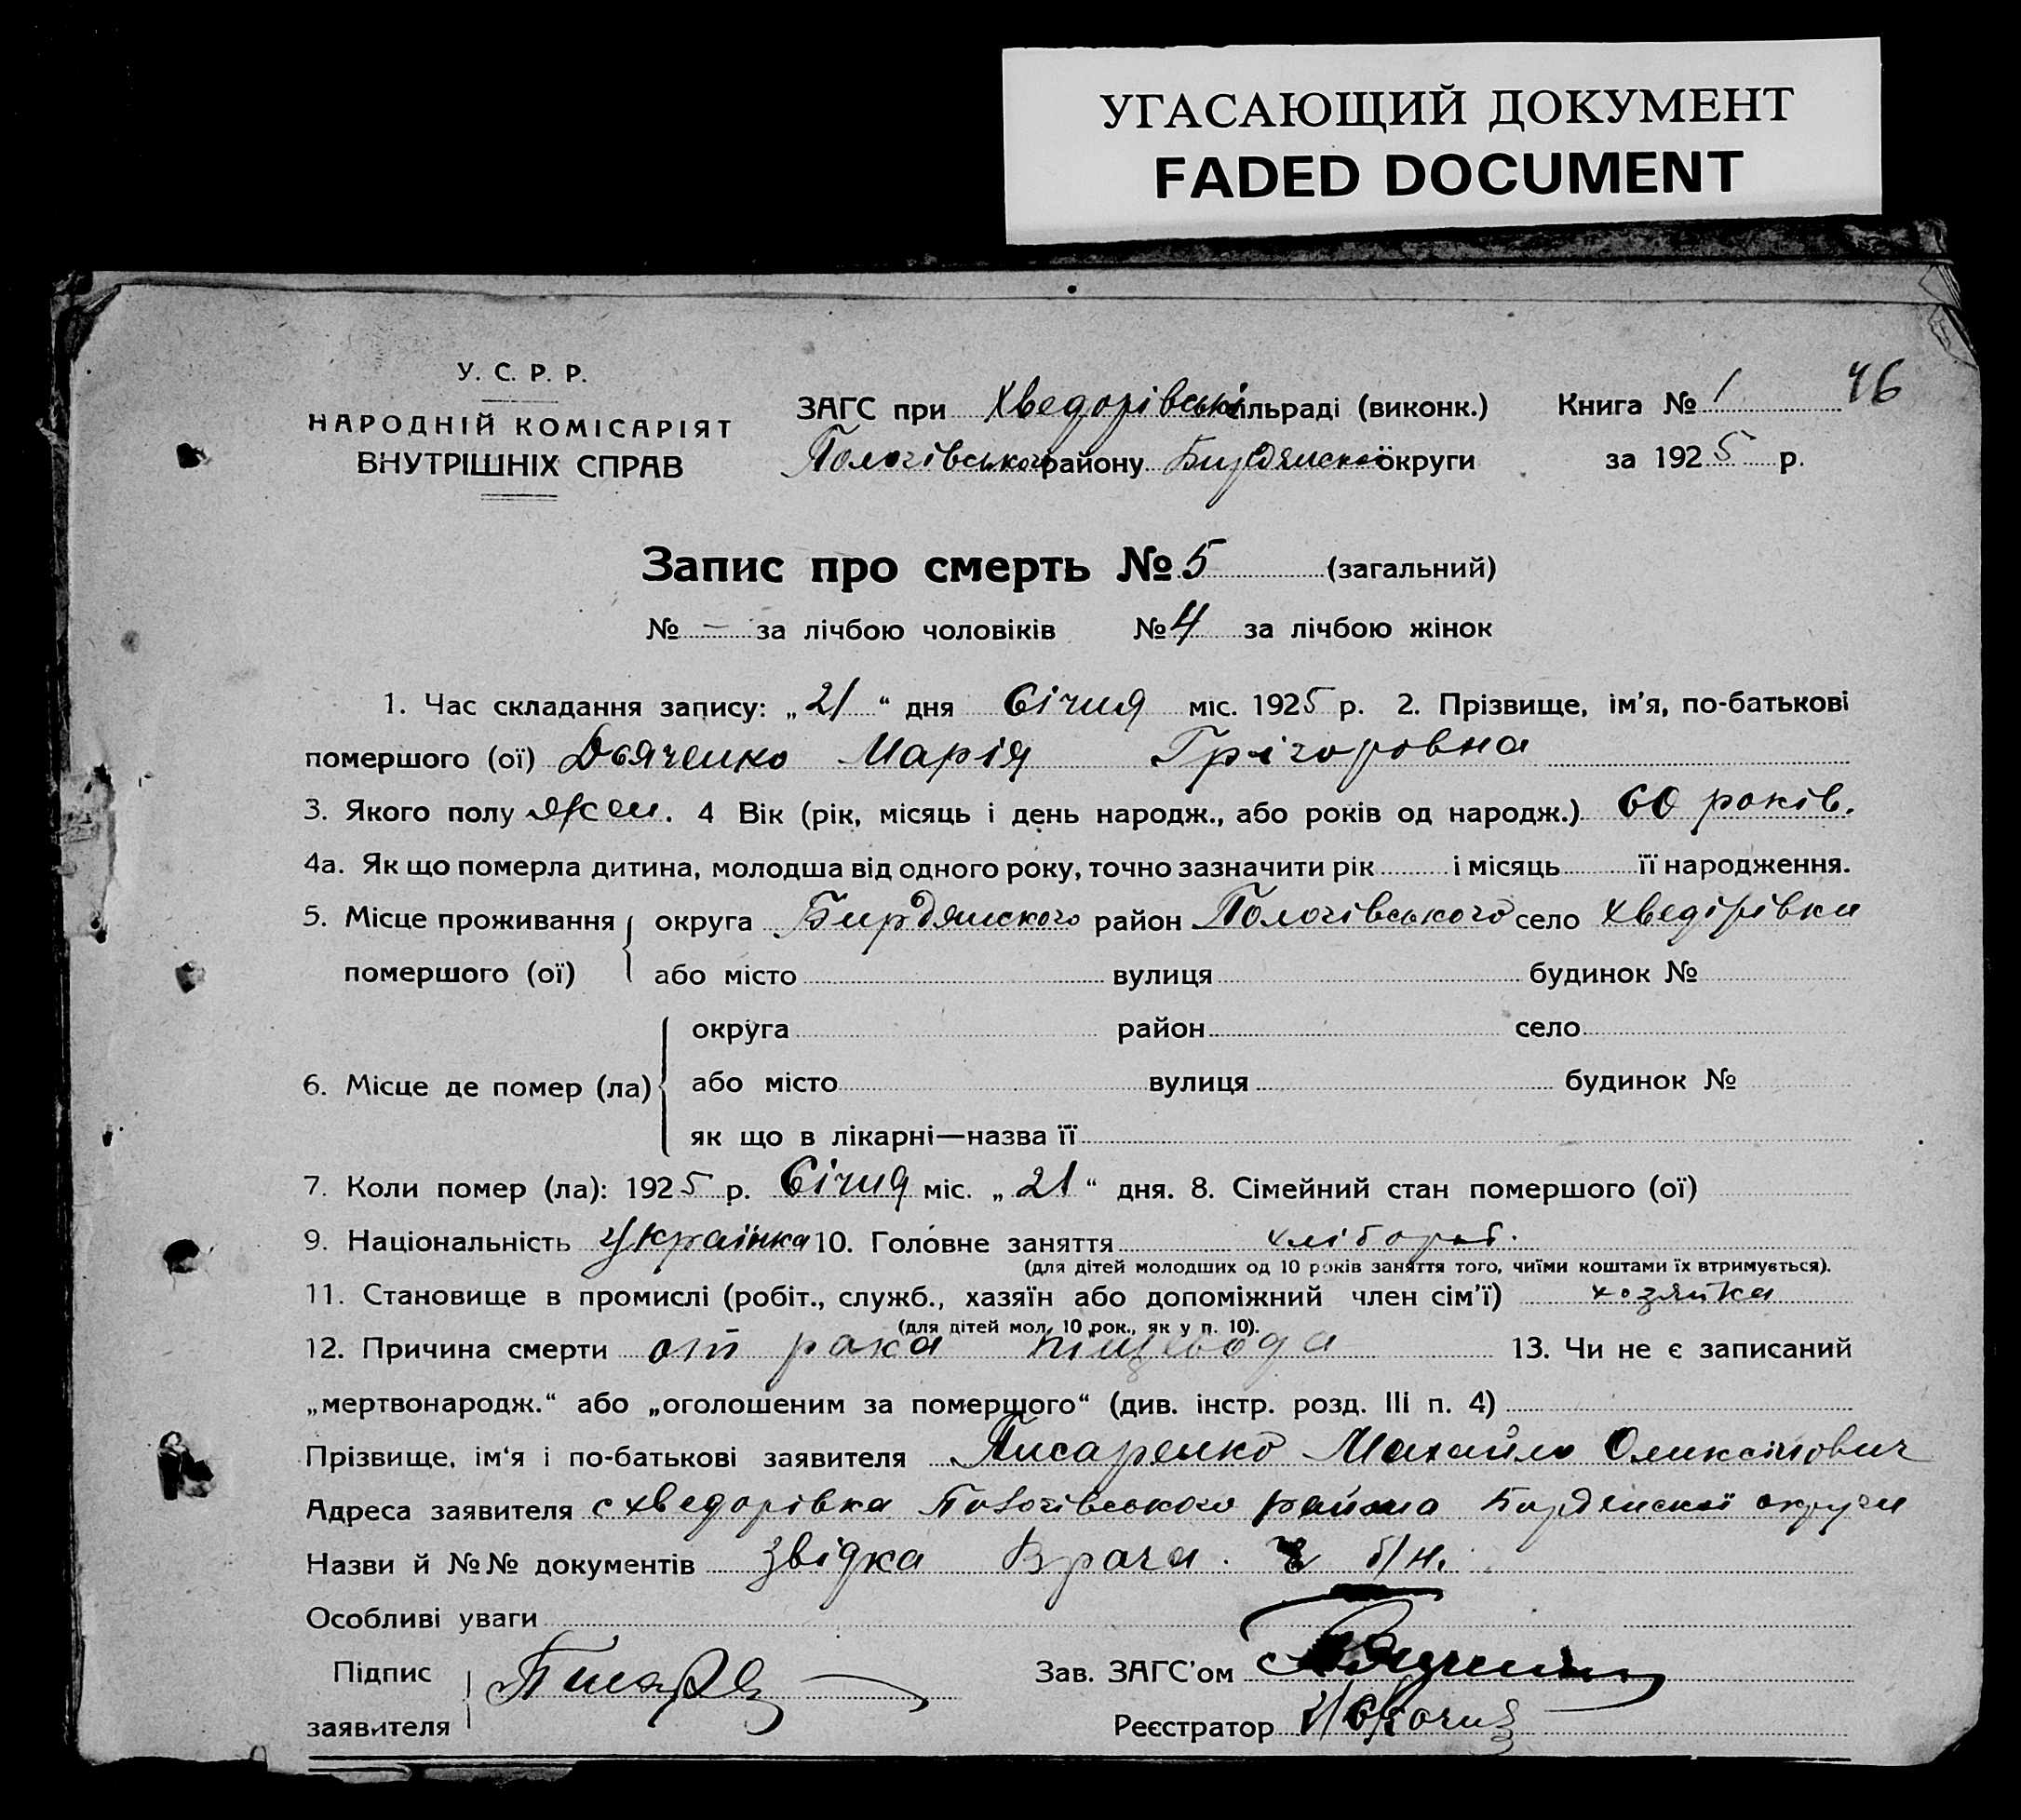 УГАСАЮЩИЙ ДОКУМЕНТ
FADED DOCUMENT
У. С. Р. Р.
НАРОДНІЙ КОМІСАРІЯТ
ВНУТРІШНІХ СПРАВ
ЗАГС при Хведорівські сільраді (виконк.)
Пологівського району Бирдянської округи
Книга № 1 46
за 1925 р.
Запис про смерть № 5 (загальний)
№ — за лічбою чоловіків № 4 за лічбою жінок
1. Час складання запису: „21“ дня Січня міс. 1925 р. 2. Прізвище, ім'я, по-батькові
помершого (ої) Дьяченко Марія Грігоровна
3. Якого полу жен. 4 Вік (рік, місяць і день народж., або років од народж.) 60 років.
4а. Як що померла дитина, молодша від одного року, точно зазначити рік і місяць її народження.
5. Місце проживання округа Бирдянского район Пологівського село Хведірівка
помершого (ої) або місто вулиця будинок №
округа район село
6. Місце де помер (ла) або місто вулиця будинок №
як що в лікарні—назва її
7. Коли помер (ла): 1925 р. Січня міс. „21“ дня. 8. Сімейний стан помершого (ої)
9. Національність Українка 10. Головне заняття хлібороб.
(для дітей молодших од 10 років заняття того, чиїми коштами їх втримується).
11. Становище в промислі (робіт., служб., хазяїн або допоміжний член сім'ї) хозяйка
(для дітей мол. 10 рок., як у п. 10).
12. Причина смерти от рака пищевода 13. Чи не є записаний
„мертвонародж.“ або „оголошеним за помершого“ (див. інстр. розд. III п. 4)
Прізвище, ім'я і по-батькові заявителя Писаренко Михайло Оликсійович
Адреса заявителя с хведорівка Пологівського району Бирдянскої округи
Назви й №№ документів Звідка Врача. б/н.
Особливі уваги
Підпис
заявителя Писар
Зав. ЗАГС'ом
Реєстратор